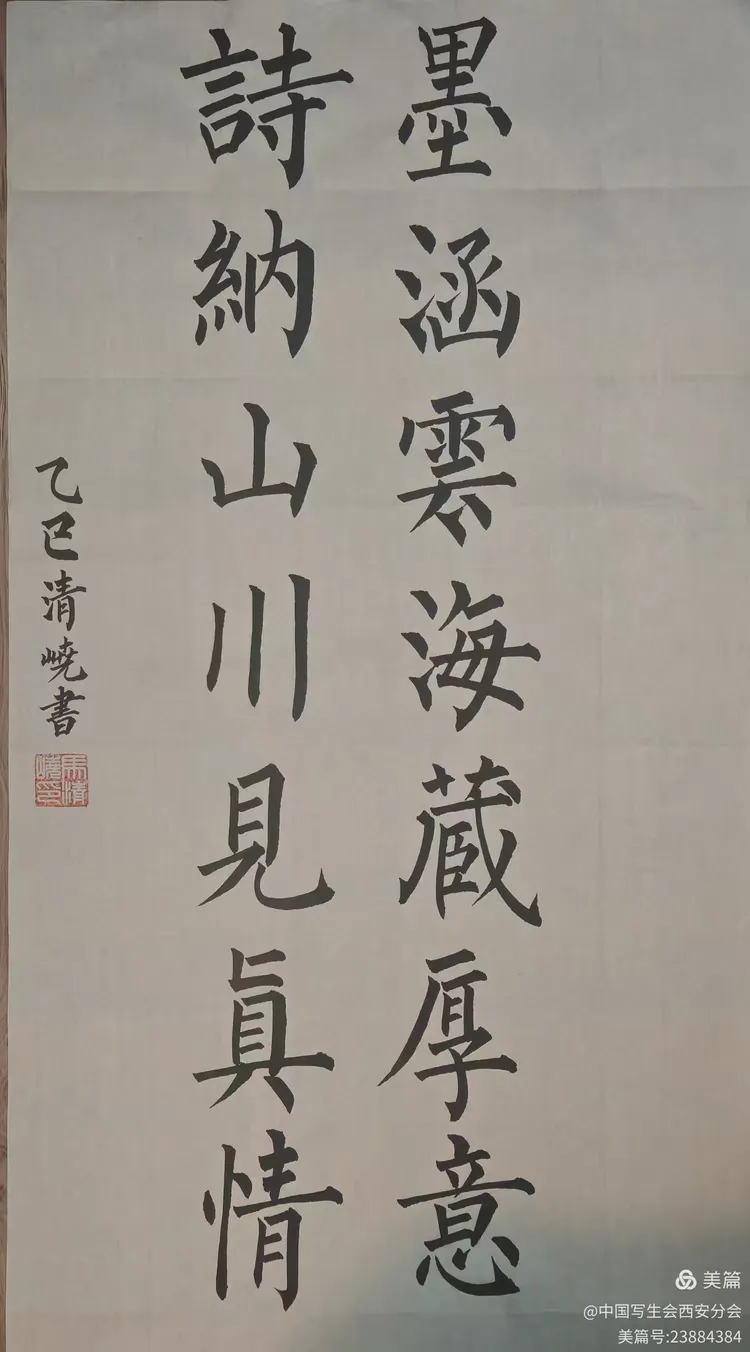 墨涵雲海蔵厚意
詩納山川見眞情
乙巳清嶢書
美篇
@中国写生会西安分会
美篇号:23884384